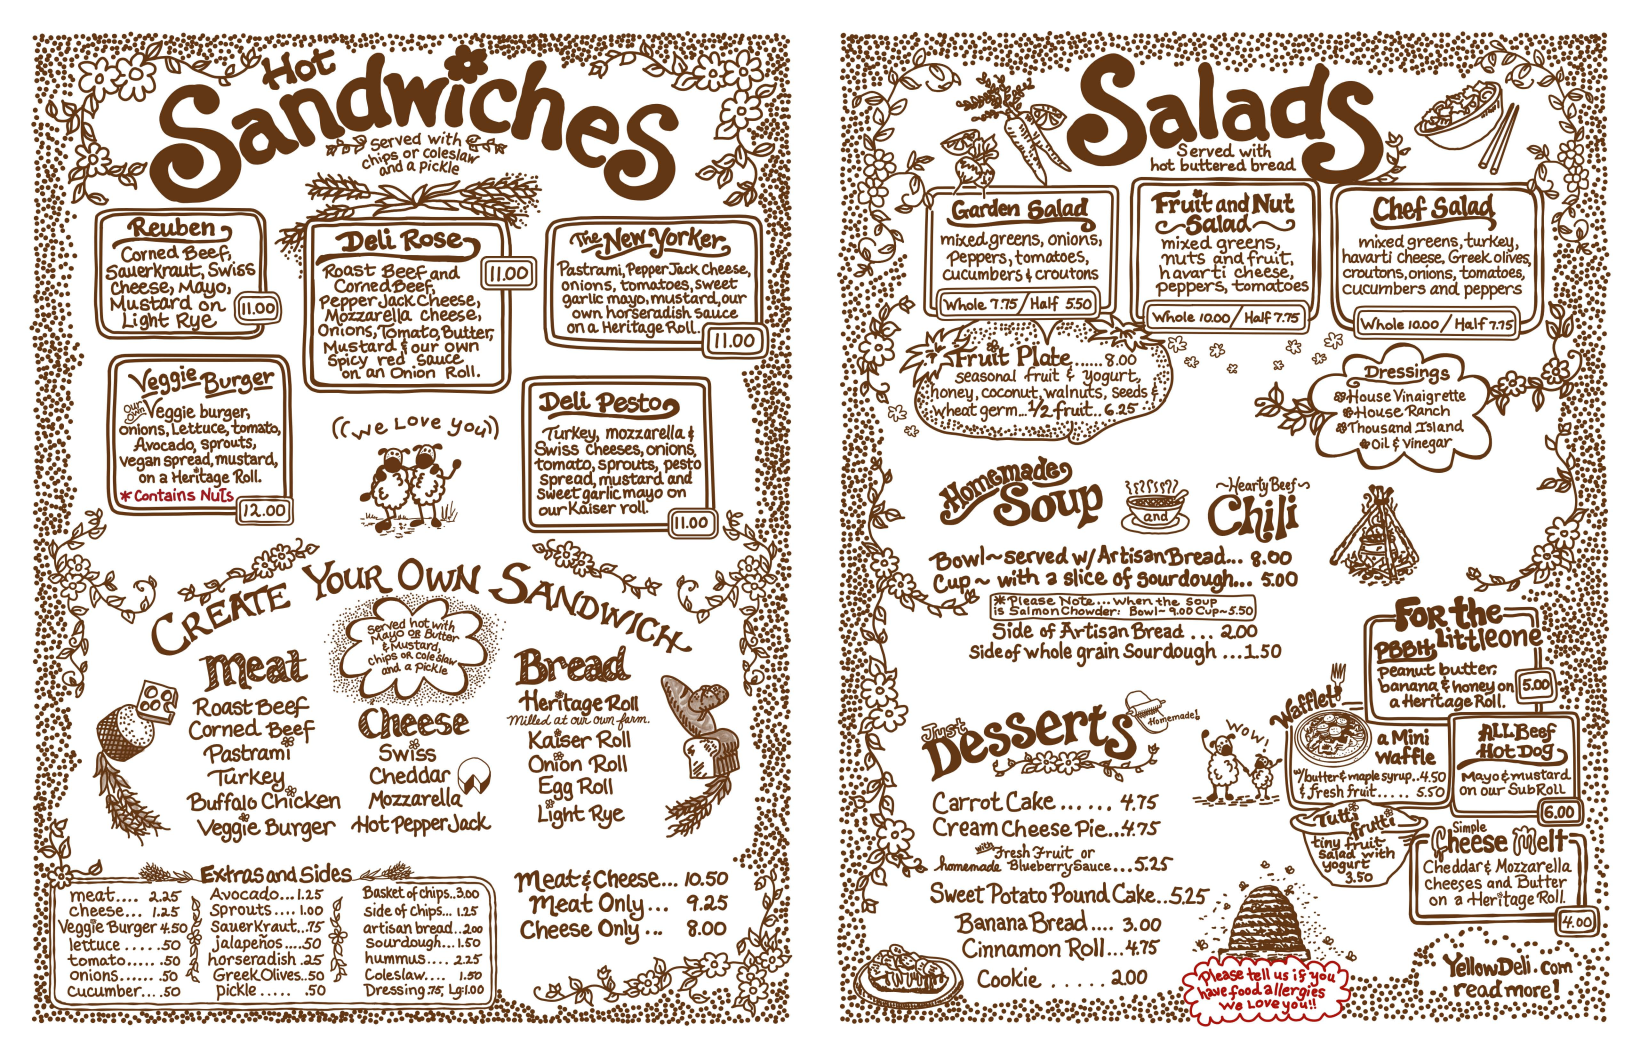 Hot
Sandwiches
Served with
chips or coleslaw
and a pickle
Reuben
Corned Beef,
Sauerkraut, Swiss
Cheese, Mayo,
Mustard on
Light Rye
11.00
Deli Rose
Roast Beef and
Corned Beef,
Pepper Jack Cheese,
Mozzarella cheese,
Onions, Tomato, Butter,
Mustard & our own
Spicy red sauce
on an Onion Roll.
11.00
The New Yorker
Pastrami, Pepper Jack Cheese,
onions, tomatoes, sweet
garlic mayo, mustard, our
own horseradish sauce
on a Heritage Roll.
11.00
Veggie Burger
Our Own Veggie burger,
onions, Lettuce, tomato,
Avocado, sprouts,
vegan spread, mustard,
on a Heritage Roll.
*Contains Nuts
12.00
((We Love you))
Deli Pesto
Turkey, mozzarella &
Swiss Cheeses, onions,
tomato, sprouts, pesto
spread, mustard and
sweet garlic mayo on
our Kaiser roll.
11.00
CREATE YOUR OWN SANDWICH
Served hot with
Mayo OR Butter
& Mustard,
chips OR coleslaw
and a pickle
Meat
Roast Beef
Corned Beef
Pastrami
Turkey
Buffalo Chicken
Veggie Burger
Cheese
Swiss
Cheddar
Mozzarella
Hot Pepper Jack
Bread
Heritage Roll
Milled at our own farm.
Kaiser Roll
Onion Roll
Egg Roll
Light Rye
Extras and Sides
meat.... 2.25
cheese... 1.25
Veggie Burger 4.50
lettuce ......50
tomato......50
onions...... .50
cucumber... .50
Avocado...1.25
Sprouts.... 1.00
Sauerkraut...75
jalapeños ....50
horseradish .25
Greek Olives..50
pickle ..... .50
Basket of chips..3.00
side of chips... 1.25
artisan bread..2.00
sourdough...1.50
hummus.... 2.25
Coleslaw.... 1.50
Dressing .75, Lg:1.00
Meat & Cheese... 10.50
Meat Only ... 9.25
Cheese Only ... 8.00
Salads
Served with
hot buttered bread
Garden Salad
mixed greens, onions,
Peppers, tomatoes,
cucumbers & croutons
Whole 7.75 / Half 5.50
Fruit and Nut
Salad
mixed greens,
nuts and fruit,
havarti cheese,
peppers, tomatoes
Whole 10.00 / Half 7.75
Chef Salad
mixed greens, turkey,
havarti cheese, Greek olives,
croutons, onions, tomatoes,
cucumbers and peppers
Whole 10.00 / Half 7.75
Fruit Plate......8.00
seasonal fruit & yogurt,
honey, coconut, walnuts, seeds &
wheat germ...1/2 fruit.. 6.25
Dressings
House Vinaigrette
House Ranch
Thousand Island
Oil & Vinegar
Homemade
Soup
and
~Hearty Beef~
Chili
Bowl~served w/ Artisan Bread... 8.00
Cup~ with a slice of sourdough... 5.00
*Please Note... when the soup
is Salmon Chowder: Bowl~ 9.00 Cup~5.50
Side of Artisan Bread ... 2.00
side of whole grain Sourdough ...1.50
For the
Little one
PBBH
Peanut butter,
banana & honey on
a Heritage Roll.
5.00
Wafflet
a Mini
Waffle
w/ butter & maple syrup..4.50
& fresh fruit..... 5.50
ALL Beef
Hot Dog
Mayo & mustard
on our Sub Roll
6.00
Tutti
frutti
tiny fruit
salad with
yogurt
3.50
Simple
Cheese Melt
Cheddar & Mozzarella
cheeses and Butter
on a Heritage Roll.
4.00
Just
Desserts
Homemade!
Wow!
Carrot Cake ...... 4.75
Cream Cheese Pie...4.75
with Fresh Fruit or
homemade Blueberry Sauce ...5.25
Sweet Potato Pound Cake...5.25
Banana Bread .... 3.00
Cinnamon Roll...4.75
Cookie ...... 2.00
Please tell us if you
have food allergies
We Love you!!
YellowDeli.com
read more!